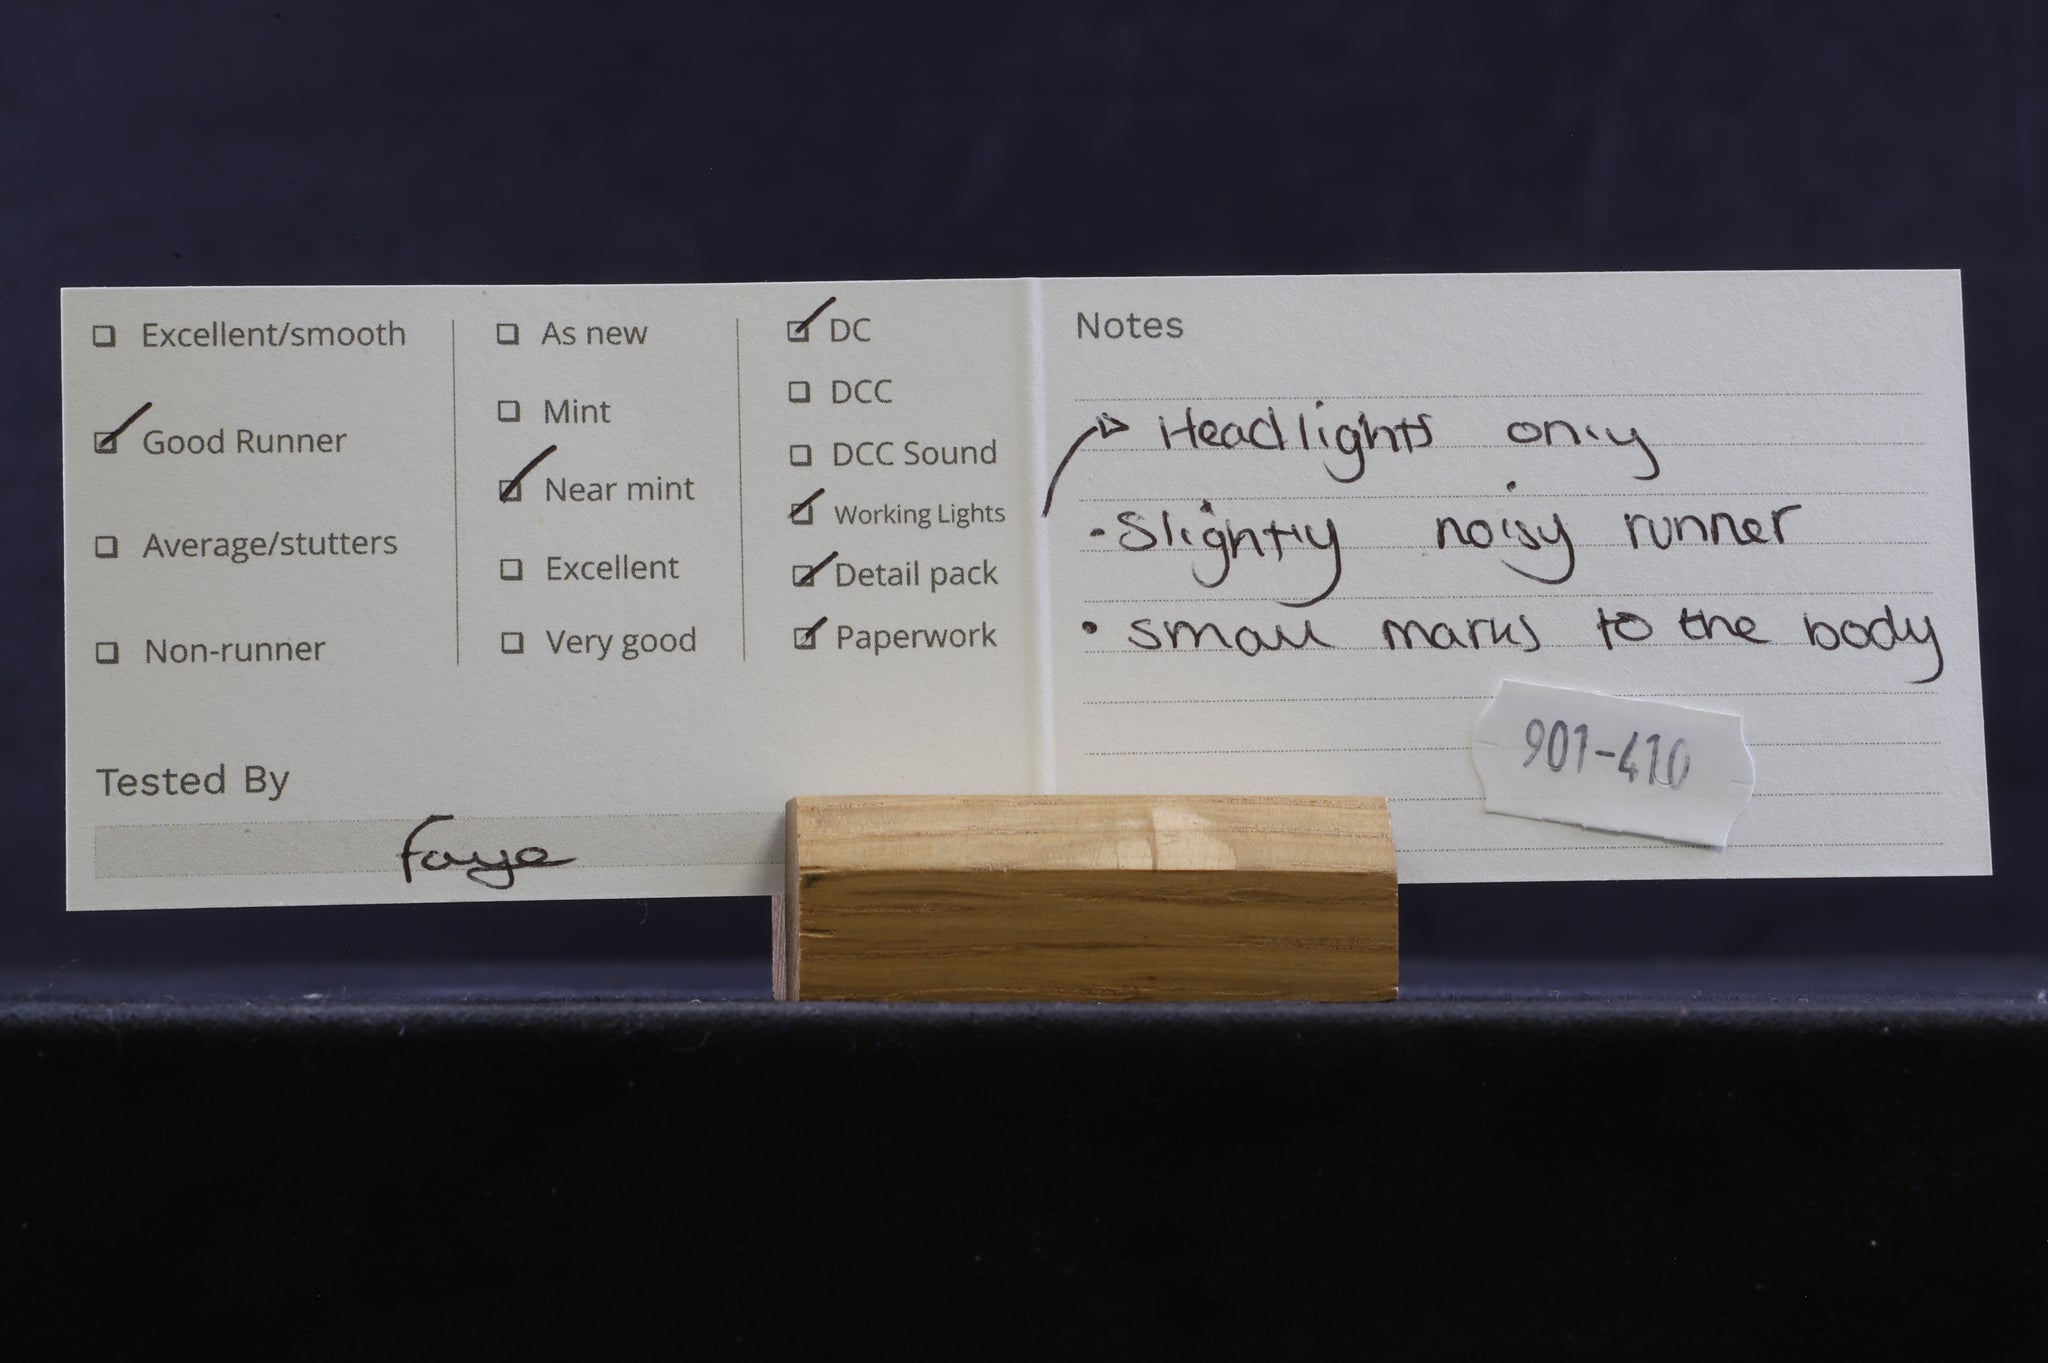 Excellent/smooth
Good Runner
Average/stutters
Non-runner
As new
Mint
Near mint
Excellent
Very good
DC
DCC
DCC Sound
Working Lights
Detail pack
Paperwork
Tested By
faye
Notes
Headlights only
• Slightly noisy runner
• small marks to the body
901-410